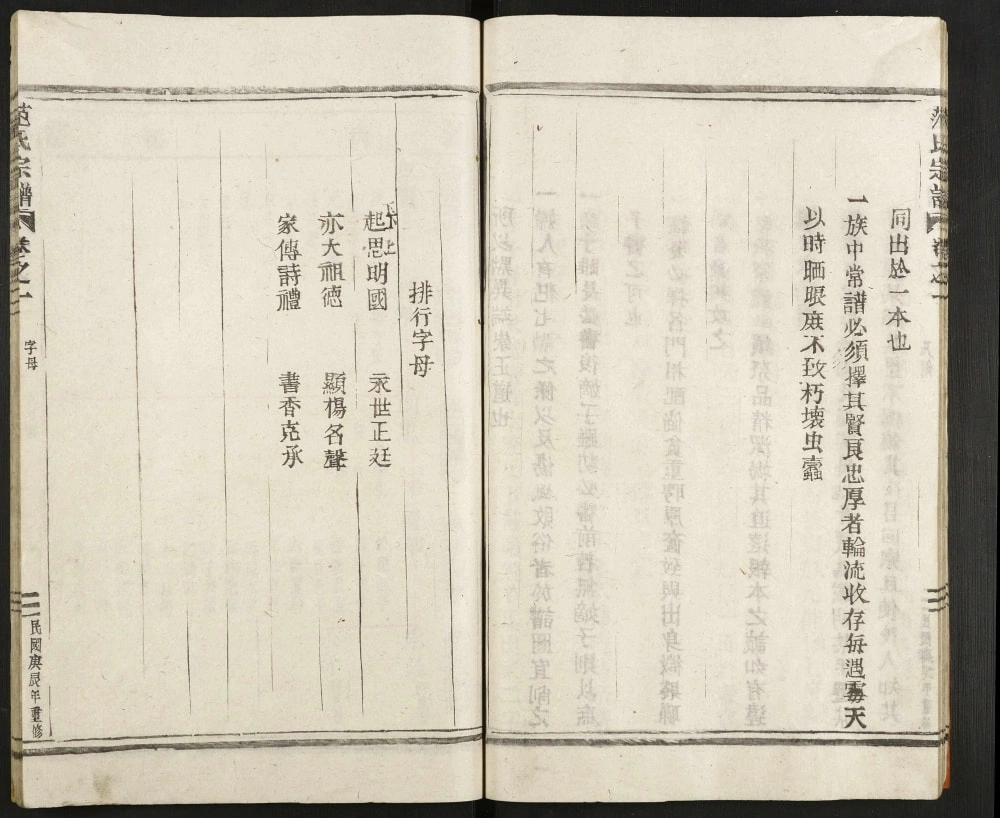 同出於一本也
一族中常譜必須擇其賢良忠厚者輪流收存每遇霉天
以時晒眼庶不致朽壞虫蠹
排行字母
起思明國 永世正廷
亦大祖德 顯楊名聲
家傳詩禮 書香克承
范氏宗譜 卷之一 字母 民國庚辰年重修